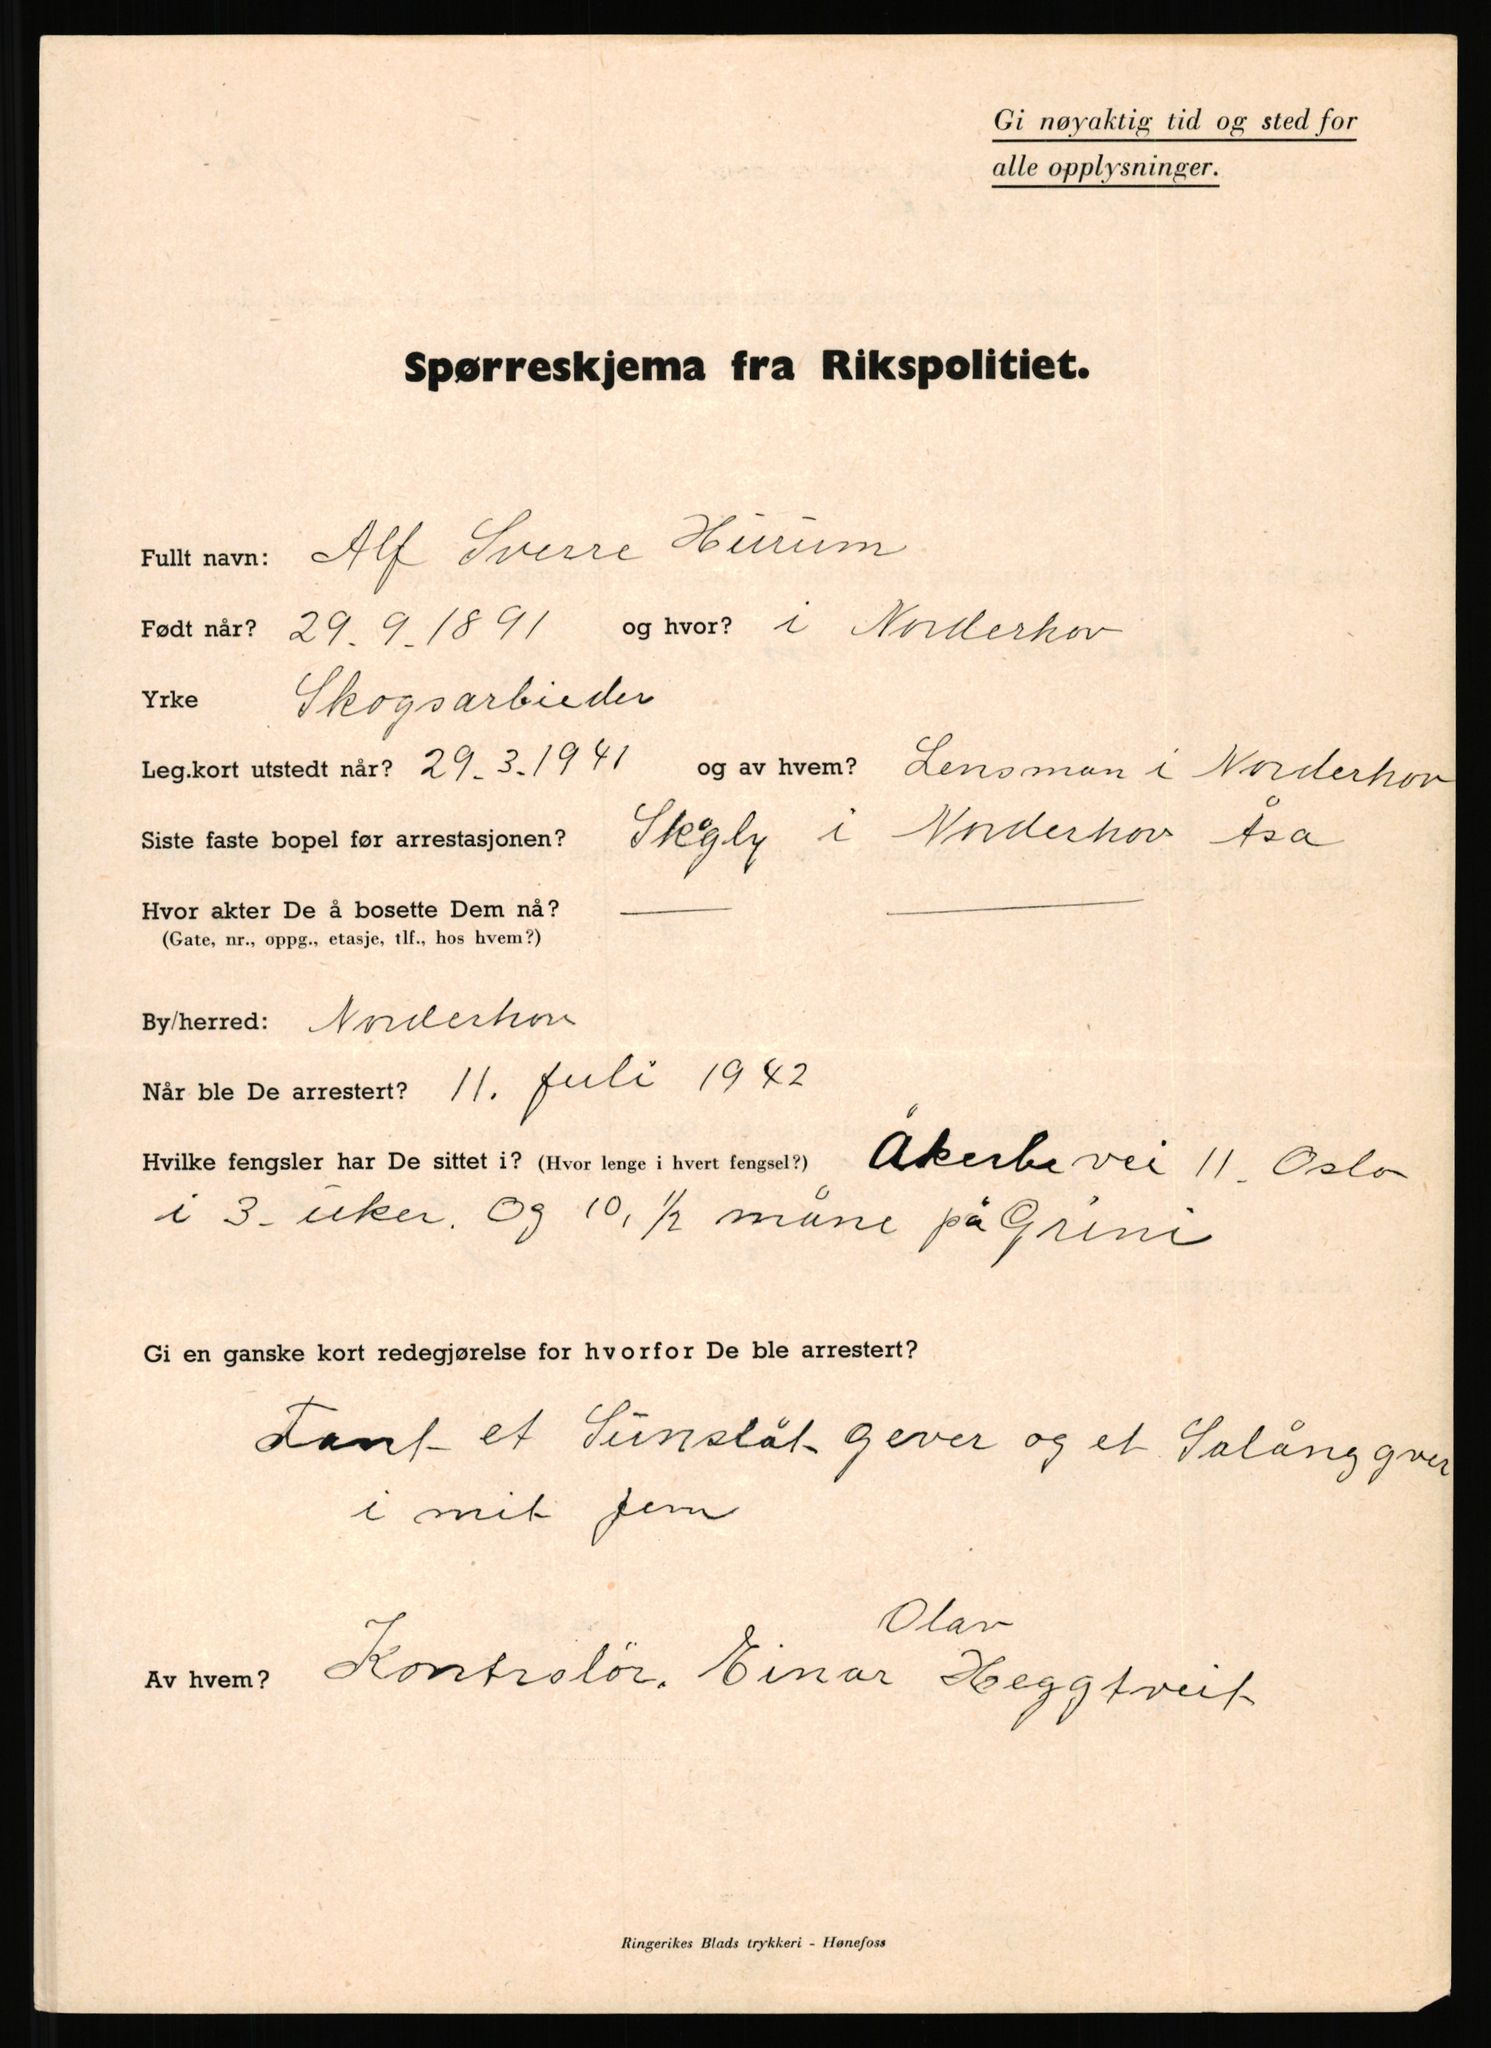 Gi nøyaktig tid og sted for
alle opplysninger.
Spørreskjema fra Rikspolitiet.
Fullt navn: Alf Sverre Hürüm
Født når? 29-9-1891 og hvor? i Norderhov
Yrke Skogsarbieder
Leg.kort utstedt når? 29-3-1941 og av hvem? Lensman i Norderhov
Siste faste bopel før arrestasjonen? Skogly i Norderhov Åsa
Hvor akter De å bosette Dem nå?
(Gate, nr., oppg., etasje, tlf., hos hvem?)
By/herred: Norderhov
Når ble De arrestert? 11. Juli 1942
Hvilke fengsler har De sittet i? (Hvor lenge i hvert fengsel?) Åkerbevei 11 - Oslo
i 3 - üker. Og 10, 1/2 måne på Grini
Gi en ganske kort redegjørelse for hvorfor De ble arrestert?
Fant et gever og et Salånggver
i mit jem
Olav
Av hvem? Kontrolör. Einar Heggtveit
Ringerikes Blads trykkeri - Hønefoss